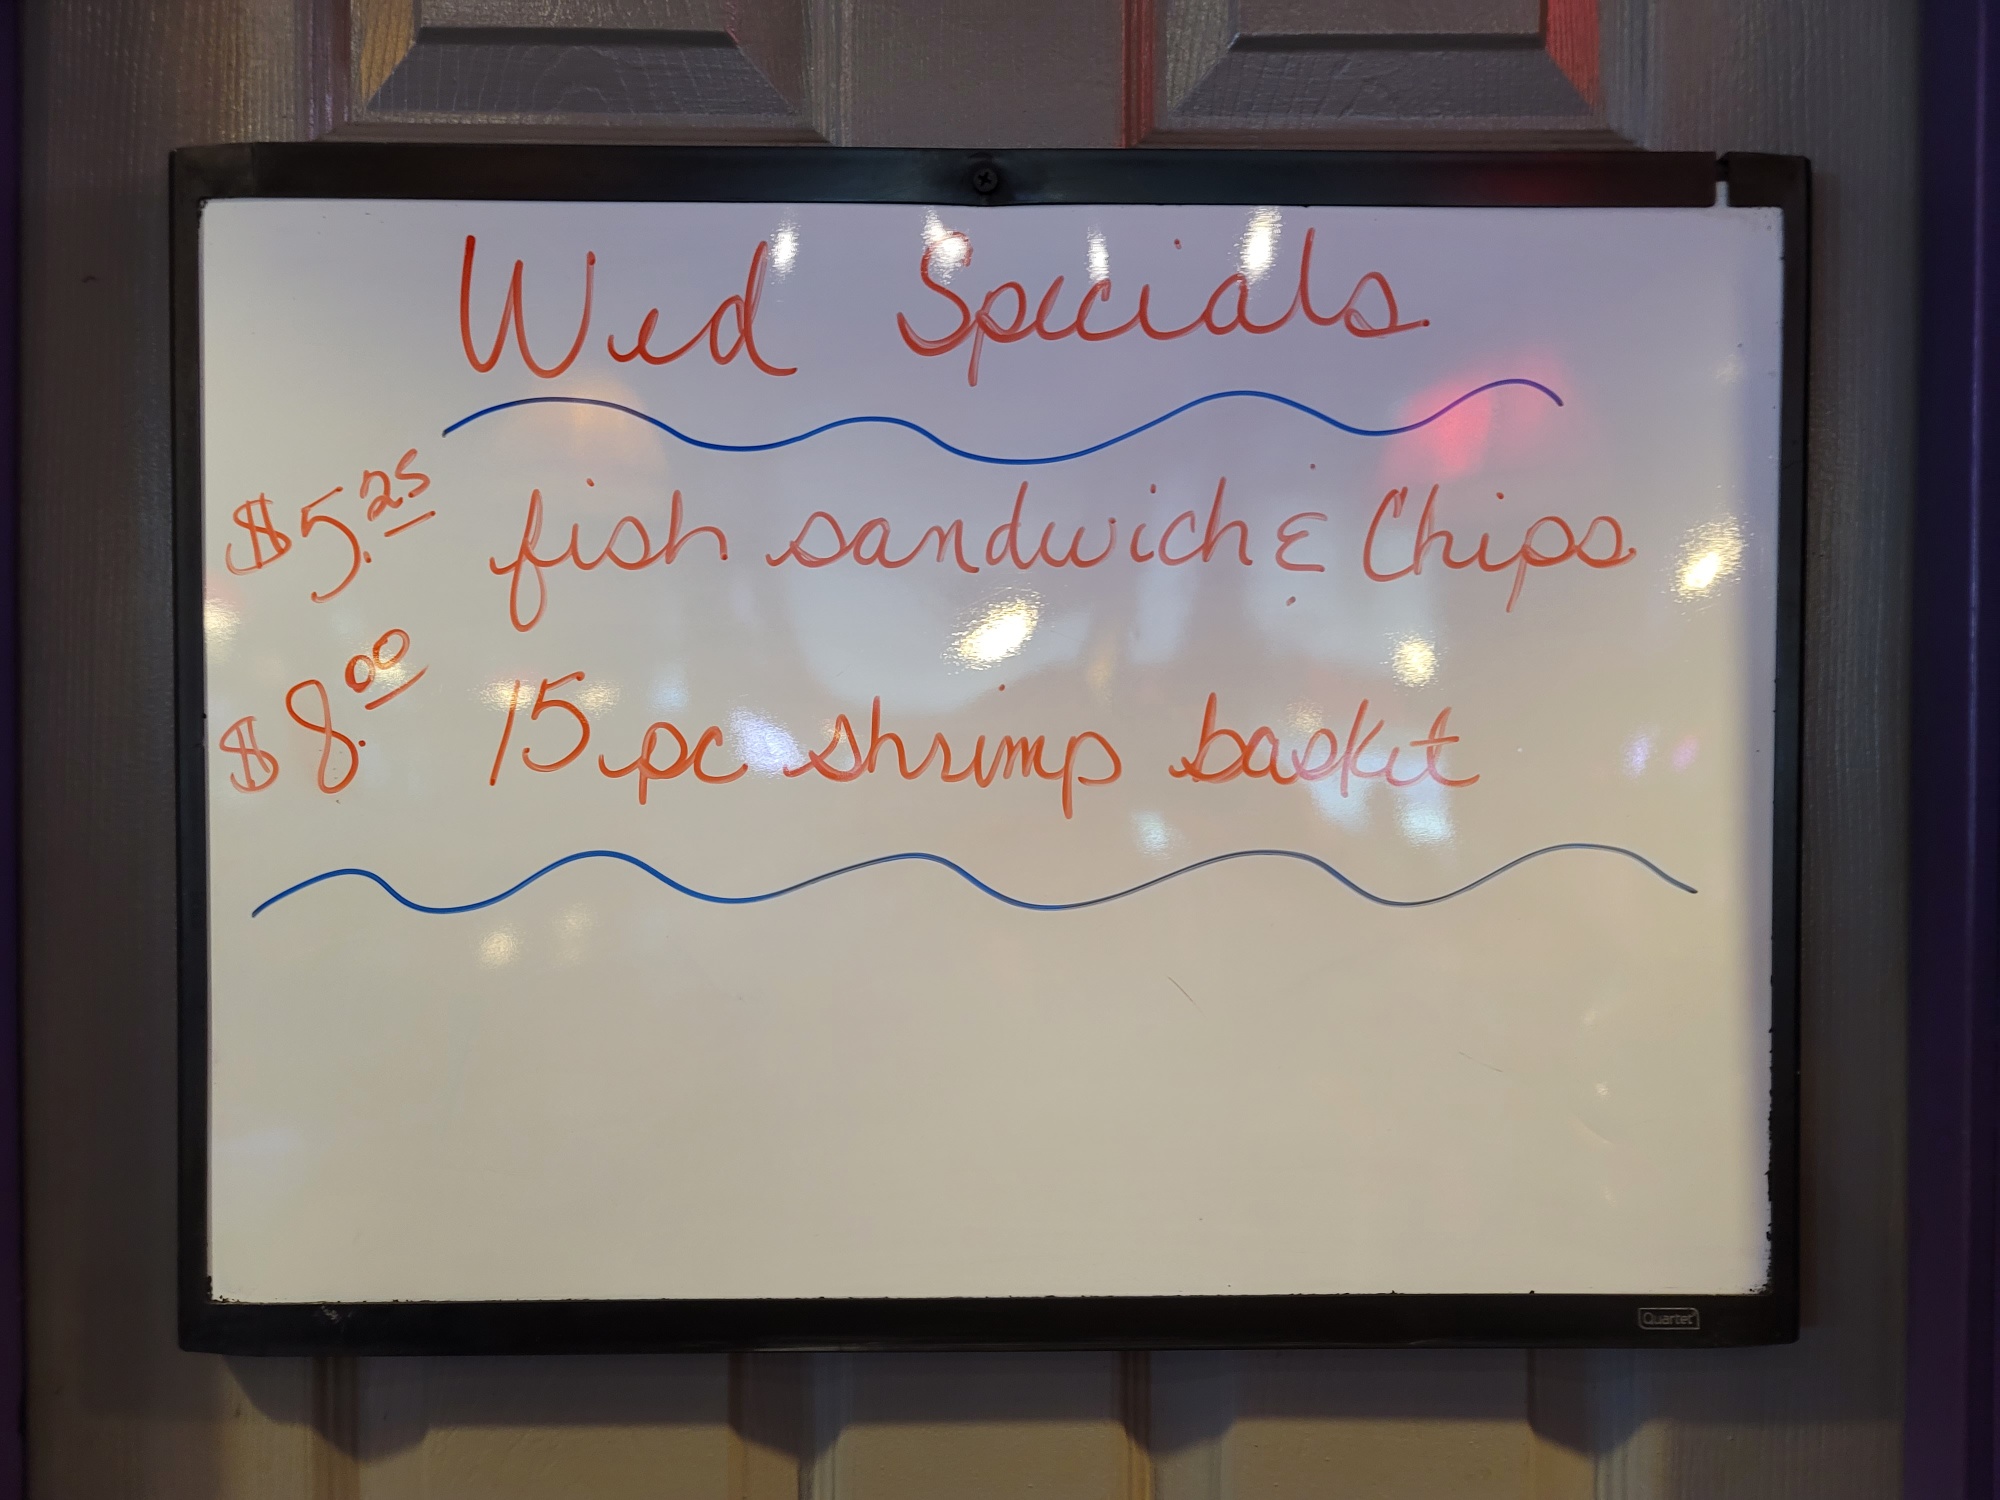 Wed Specials
$5.25 fish sandwich & Chips
$8.00 15 pc shrimp basket
Quartet